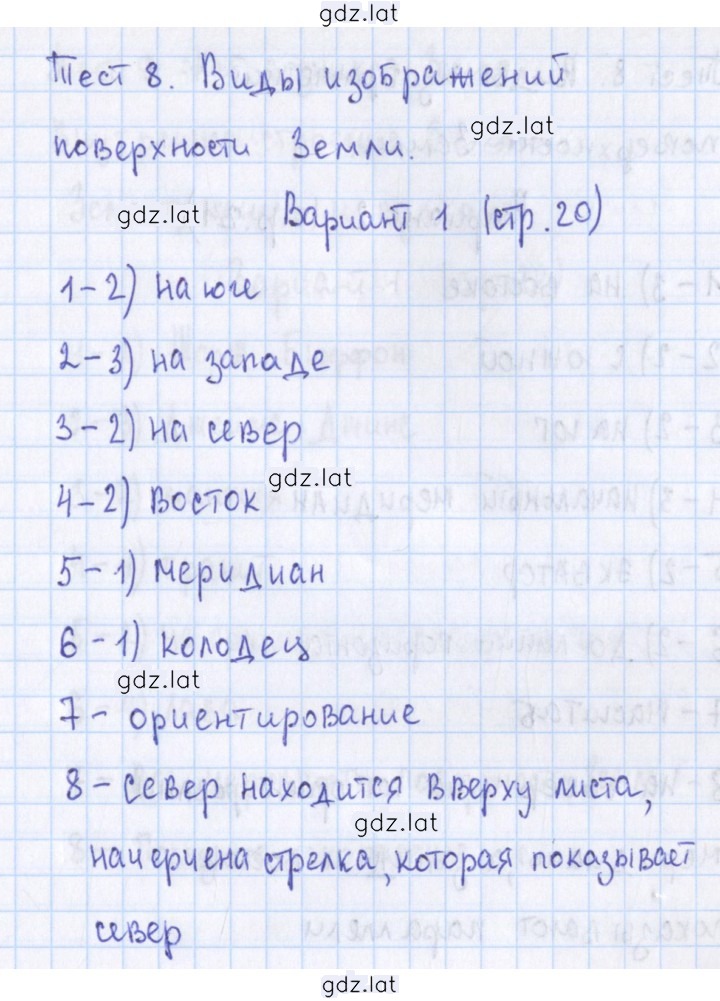 gdz.lat
Тест 8. Виды изображений
gdz.lat
поверхности Земли.
gdz.lat
Вариант 1 (стр. 20)
1-2) на юге
2-3) на западе
3-2) на север
gdz.lat
4-2) Восток
5-1) меридиан
6-1) колодец
gdz.lat
7- ориентирование
8-север находится вверху листа,
gdz.lat
начерчена стрелка, которая показывает
север
gdz.lat